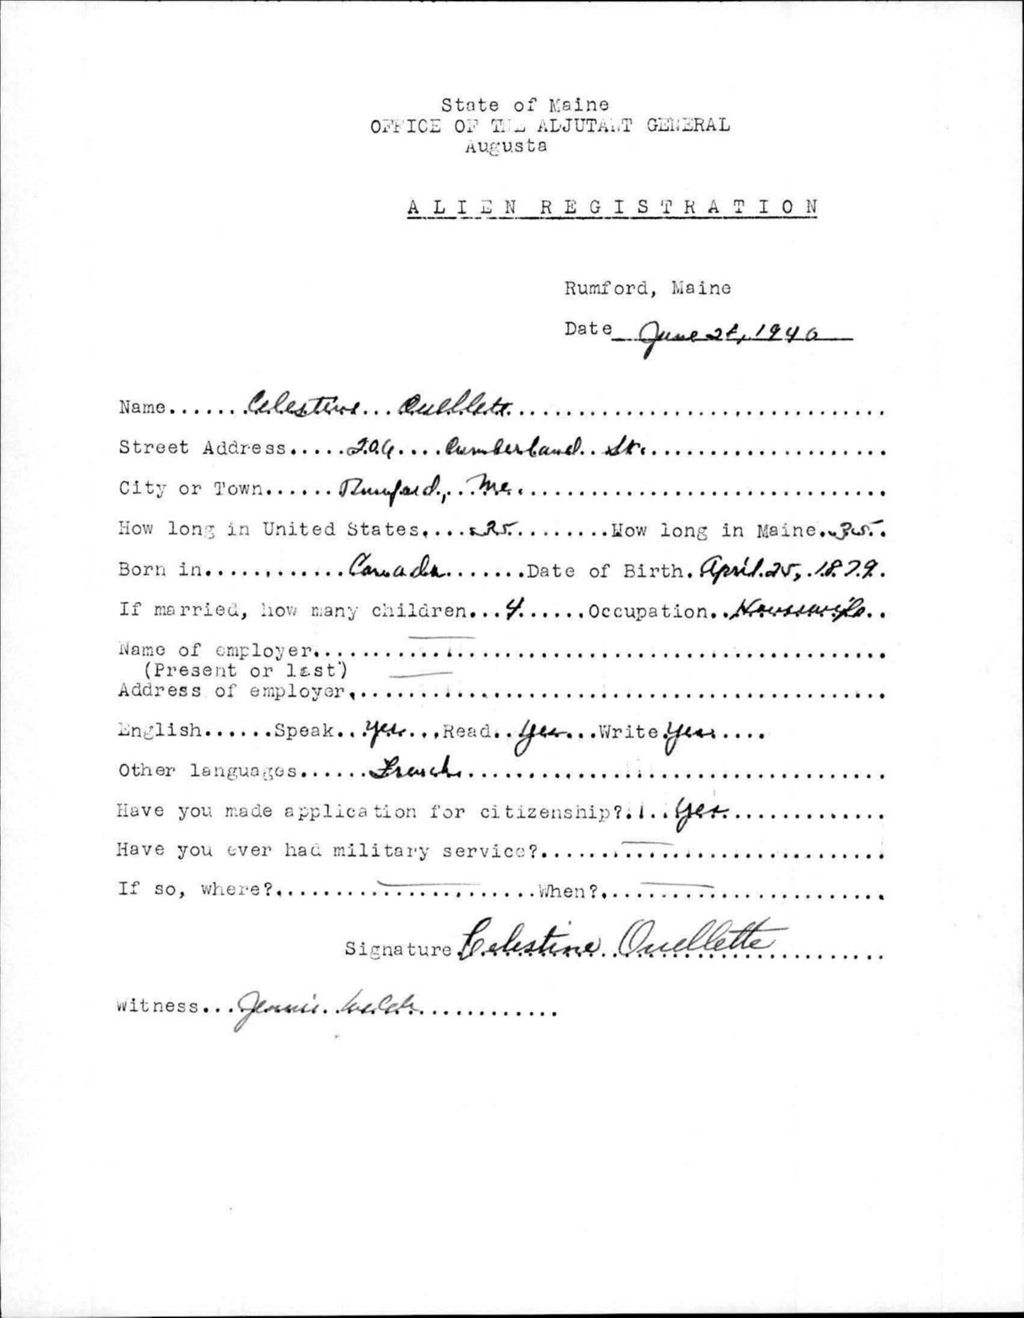 State of Maine
OFFICE OF THE ADJUTANT GENERAL
Augusta
ALIEN REGISTRATION
Rumford, Maine
Date June 28, 1940
Name.......Celestine...Ouellette
Street Address.....206....Cumberland..St.
City or Town......Rumford,..Me.
How long in United States.....35..........How long in Maine..35..
Born in...........Canada.......Date of Birth.April.25,.1879.
If married, how many children...4......Occupation..Housewife..
Name of employer
(Present or last)
Address of employer
English......Speak..yes...Read..yes...Write.yes....
Other languages......French
Have you made application for citizenship?....yes
Have you ever had military service?
If so, where?.......................When?
Signature Celestine Ouellette
Witness...Jennie.Welch